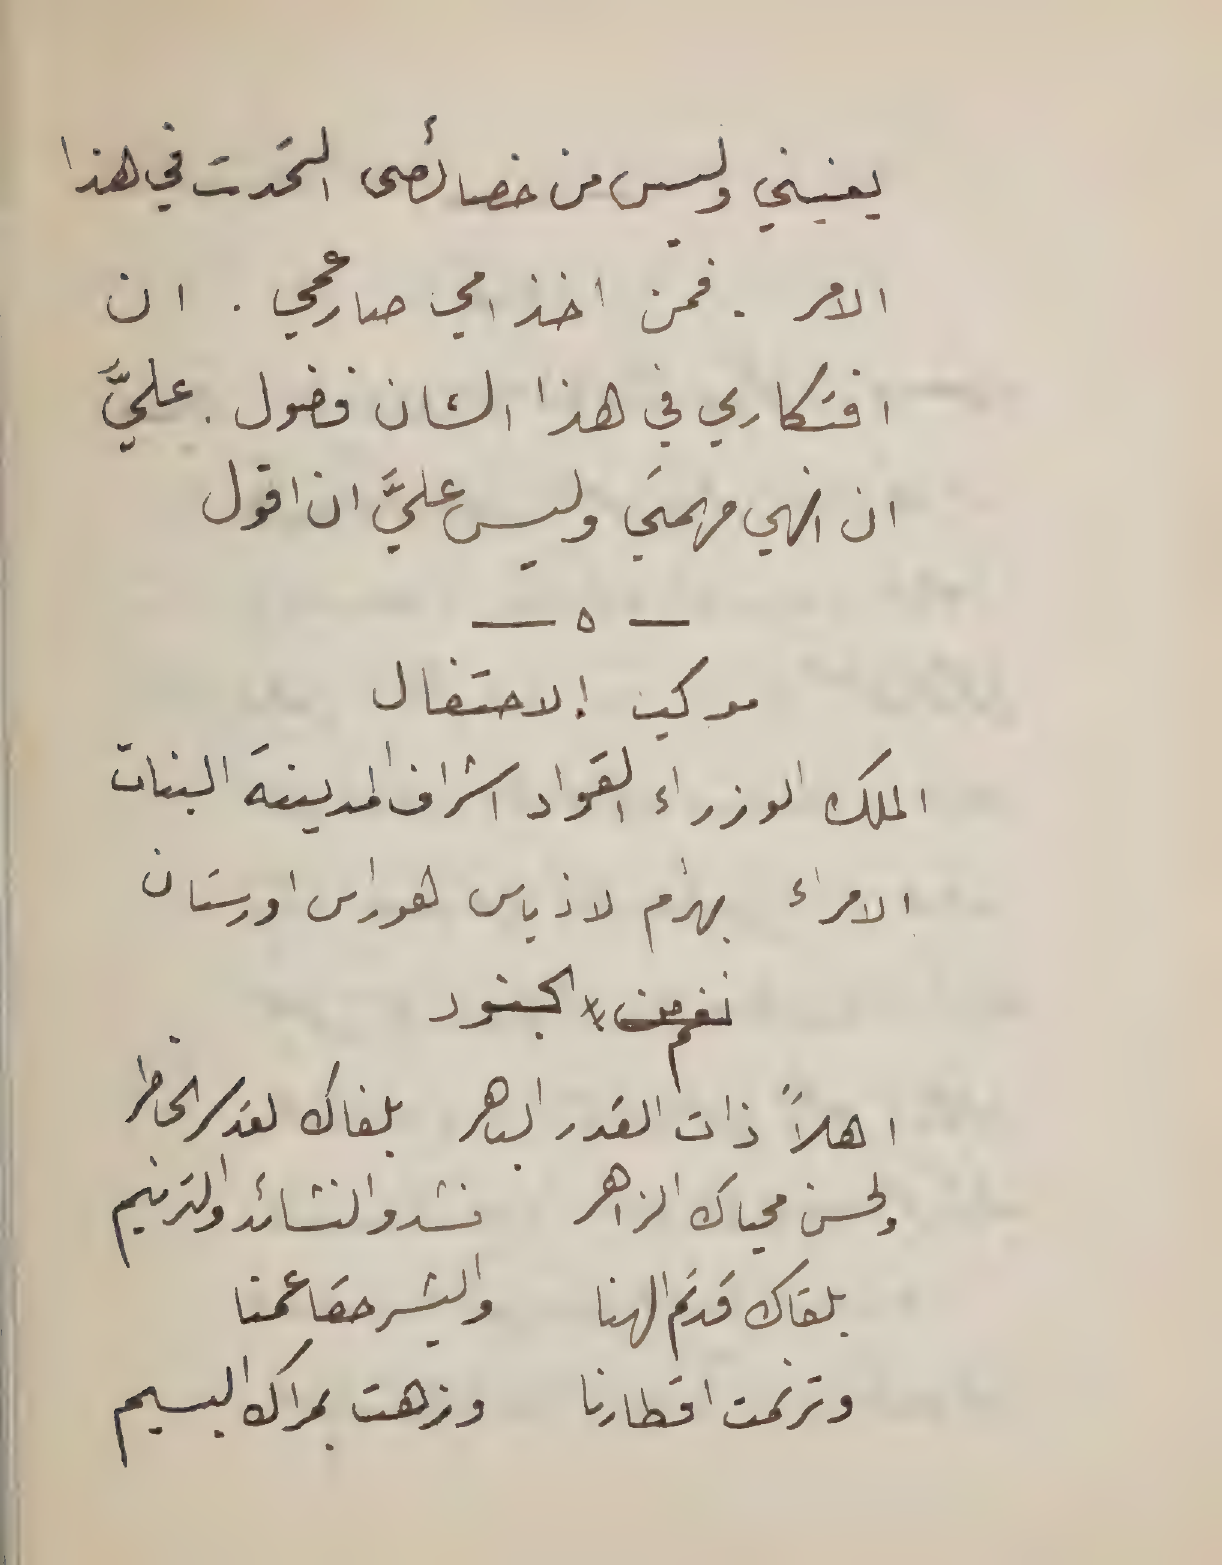 يعنيني وليس من خصائصي التحدث في هذا
الامر . فمن اخذ امي صار عمي . ان
افتكاري في هذا الشان فضول . عليَّ
ان انهي مهمتي وليس عليَّ ان اقول
— ٥ —
موكب الاحتفال
الملك الوزراء القواد اشراف المدينة البنات
الامراء بهرام لاذياس لهوراس اورستان
نفر من الجنود
اهلاً ذات القدر الباهر بلقاك لقد سر الخاطر
ولحسن محياك الزاهر نشدو النشائد والترنيم
بلقاك قد تم الهنا والبشر حقا عمنا
وترنمت اقطارنا وزهت بمراك البسيم